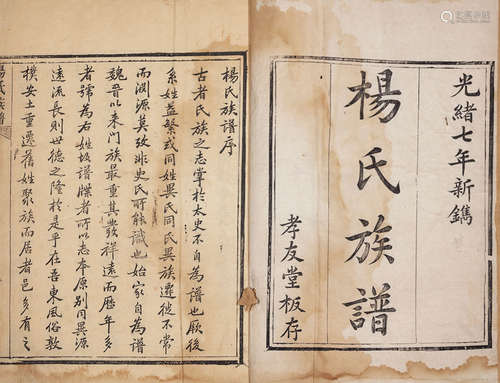 光緒七年新鐫
楊氏族譜
孝友堂板存
楊氏族譜序
古者氏族之志掌於太史不自為譜也厥後
系姓益繁或同姓異氏同氏異族遷徙不常
而淵源莫攷非史氏所能識也始家自為譜
魏晉以來門族最重其發祥遠而歷年多
者號為右姓故譜牒者所以志本原別同異源
遠流長則世德之隆於是乎在吾東風俗敦
樸安土重遷舊姓聚族而居者邑多有之